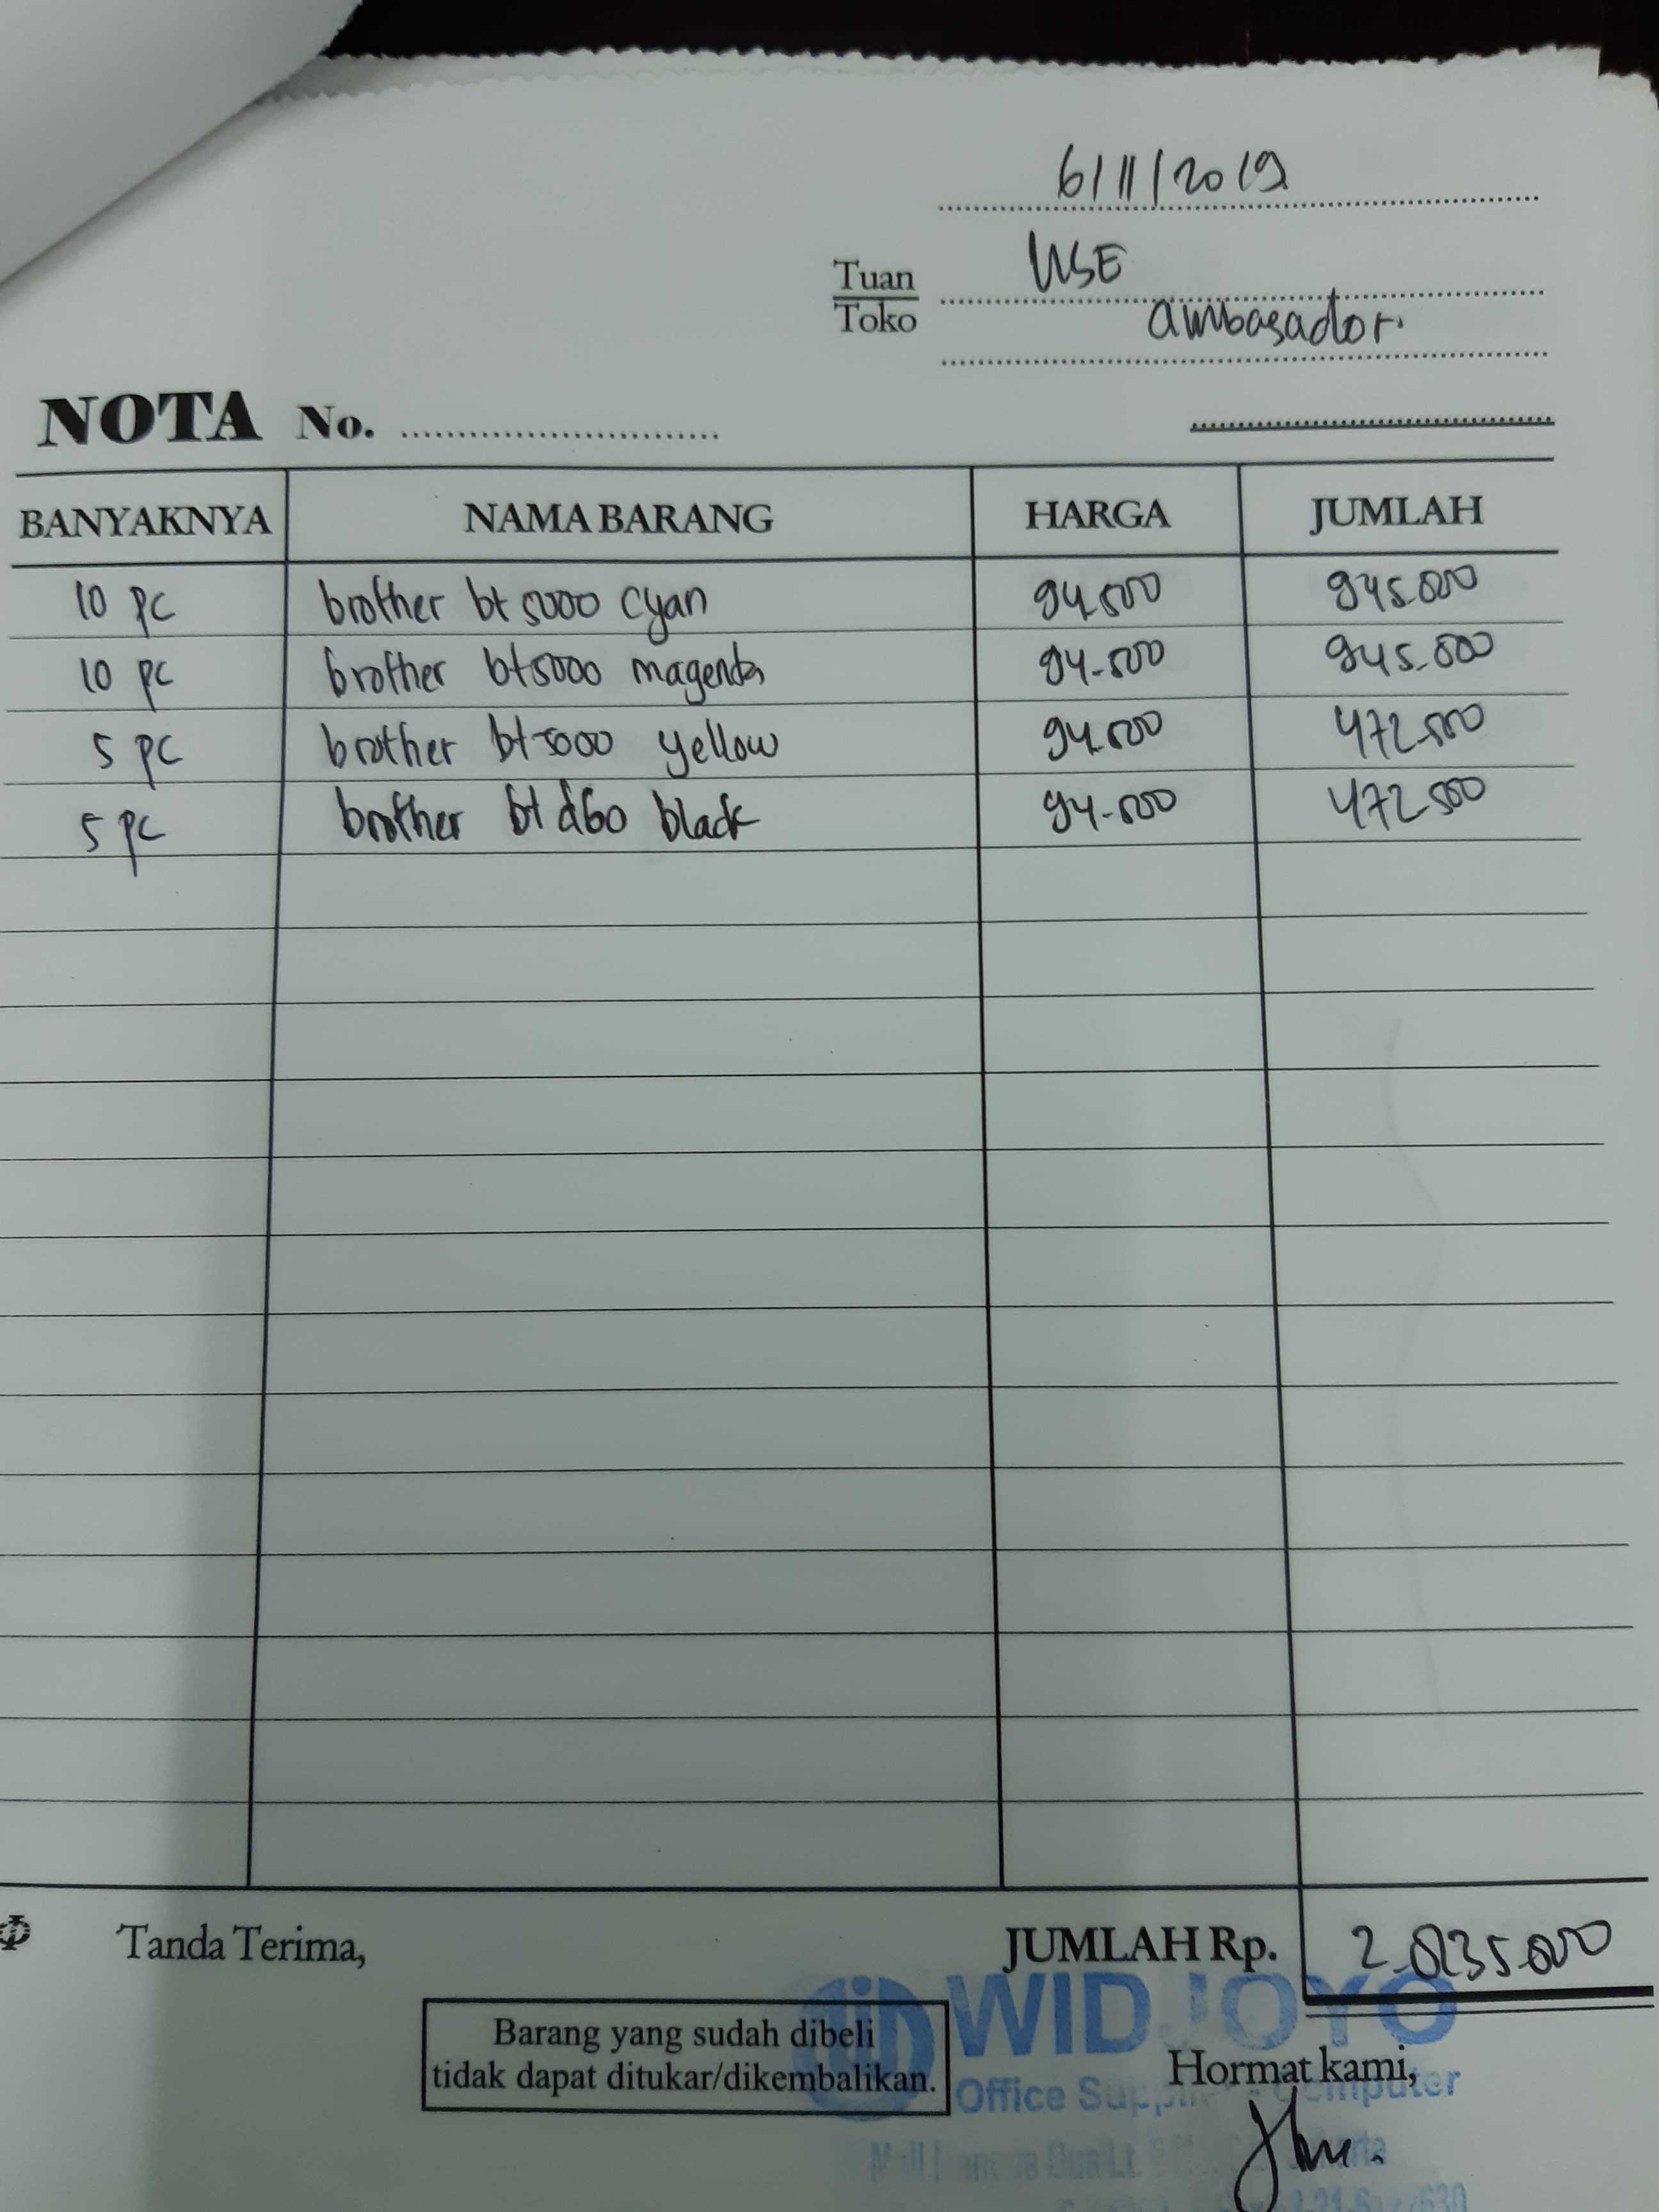 6/11/2019
Tuan
Toko
USE
ambasador.
NOTA No.
BANYAKNYA NAMA BARANG HARGA JUMLAH
10 pc brother bt 5000 cyan 94.500 945.000
10 pc brother bt5000 magenta 94.500 945.000
5 pc brother bt5000 yellow 94.500 472.500
5 pc brother bt d60 black 94.500 472.500
Tanda Terima,
JUMLAH Rp. 2.835.000
Barang yang sudah dibeli
tidak dapat ditukar/dikembalikan.
WIDJOYO
Hormat kami,
Office Computer